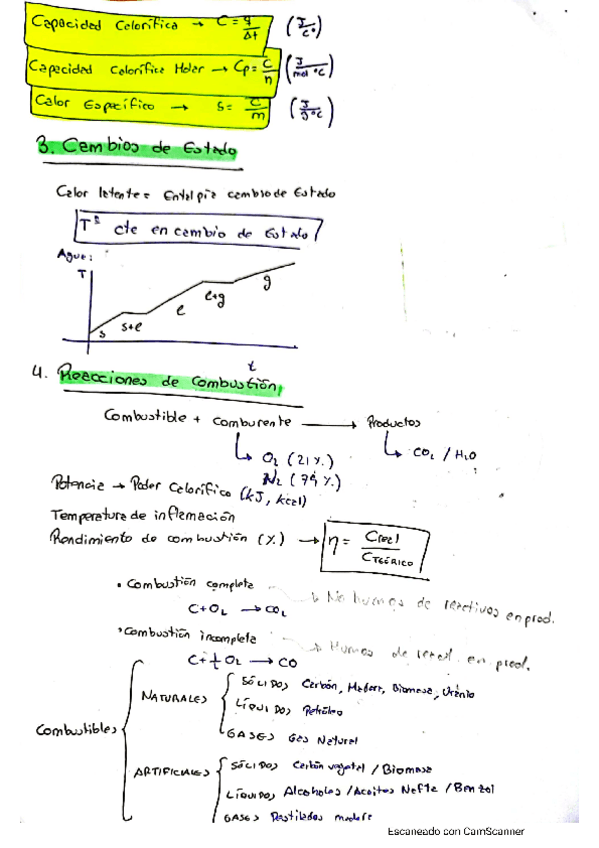 Capacidad Calorífica → C = q/Δt (J/ºC)
Capacidad Calorífica Molar → Cp = C/n (J/mol ºC)
Calor Específico → s = C/m (J/g ºC)
3. Cambios de Estado
Calor latente = Entalpía cambio de Estado
Tª cte en cambio de Estado
Agua:
T
s
s+l
l
l+g
g
t
4. Reacciones de Combustión
Combustible + Comburente → Productos
↳ O₂ (21 %.) ↳ CO₂ / H₂O
N₂ (79 %.)
Potencia → Poder Calorífico (kJ, kcal)
Temperatura de inflamación
Rendimiento de combustión (%) → η = C real / C TEÓRICO
• Combustión completa → No humos de reactivos en prod.
C + O₂ → CO₂
• Combustión incompleta → Humos de react. en prod.
C + ½ O₂ → CO
Combustibles
NATURALES
SÓLIDOS Carbón, Madera, Biomasa, Uranio
LÍQUIDOS Petróleo
GASES Gas Natural
ARTIFICIALES
SÓLIDOS Carbón vegetal / Biomasa
LÍQUIDOS Alcoholes / Aceites Nafta / Benzol
GASES Destilados madera
Escaneado con CamScanner